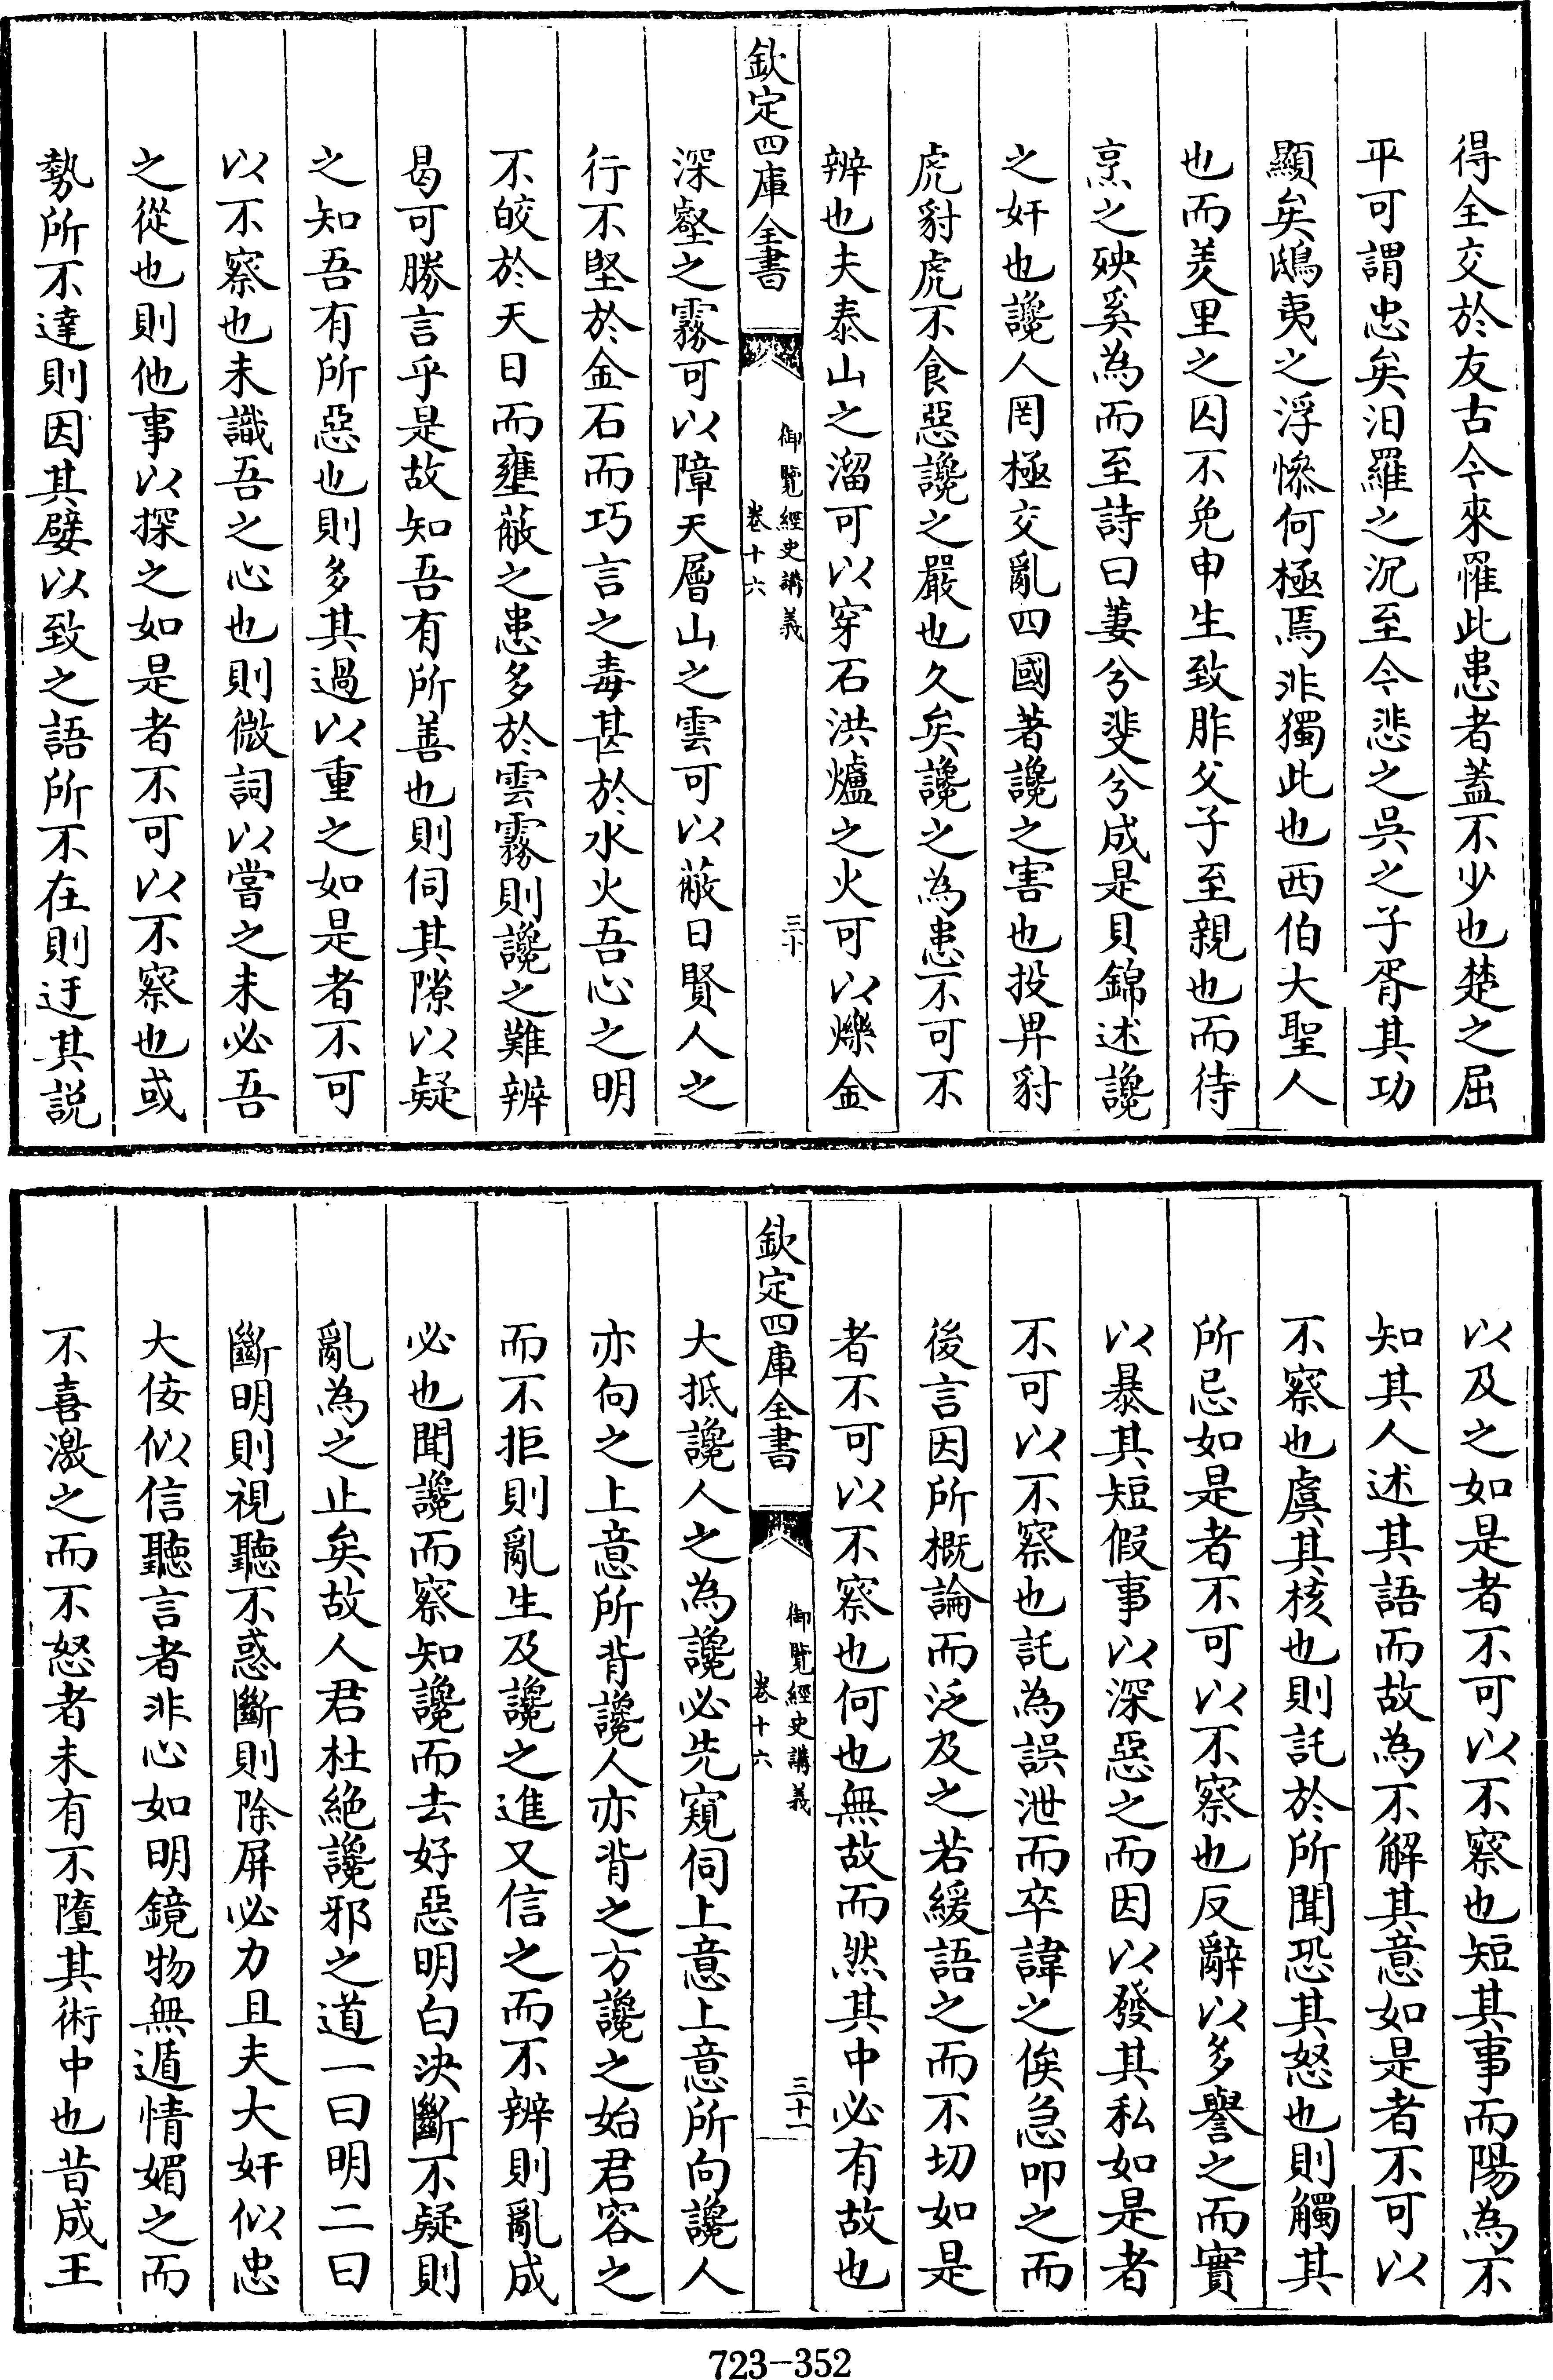 得全交於友古今來罹此患者蓋不少也楚之屈
平可謂忠矣汨羅之沉至今悲之吳之子胥其功
顯矣鴟夷之浮慘何極焉非獨此也西伯大聖人
也而羑里之囚不免申生致胙父子至親也而待
烹之殃奚為而至詩曰萋兮斐兮成是貝錦述讒
之奸也讒人罔極交亂四國著讒之害也投畀豺
虎豺虎不食惡讒之嚴也久矣讒之為患不可不
辨也夫泰山之溜可以穿石洪爐之火可以爍金
欽定四庫全書
御覽經史講義
卷十六
三十
深壑之霧可以障天層山之雲可以蔽日賢人之
行不堅於金石而巧言之毒甚於水火吾心之明
不皎於天日而壅蔽之患多於雲霧則讒之難辨
曷可勝言乎是故知吾有所善也則伺其隙以疑
之知吾有所惡也則多其過以重之如是者不可
以不察也未識吾之心也則微詞以嘗之未必吾
之從也則他事以探之如是者不可以不察也或
勢所不達則因其嬖以致之語所不在則迂其說
以及之如是者不可以不察也短其事而陽為不
知其人述其語而故為不解其意如是者不可以
不察也虞其核也則託於所聞恐其怒也則觸其
所忌如是者不可以不察也反辭以多譽之而實
以暴其短假事以深惡之而因以發其私如是者
不可以不察也託為誤泄而卒諱之俟急叩之而
後言因所概論而泛及之若緩語之而不切如是
者不可以不察也何也無故而然其中必有故也
欽定四庫全書
御覽經史講義
卷十六
三十一
大抵讒人之為讒必先窺伺上意上意所向讒人
亦向之上意所背讒人亦背之方讒之始君容之
而不拒則亂生及讒之進又信之而不辨則亂成
必也聞讒而察知讒而去好惡明白決斷不疑則
亂為之止矣故人君杜絕讒邪之道一曰明二曰
斷明則視聽不惑斷則除屏必力且夫大奸似忠
大佞似信聽言者非心如明鏡物無遁情媚之而
不喜激之而不怒者未有不墮其術中也昔成王
723-352